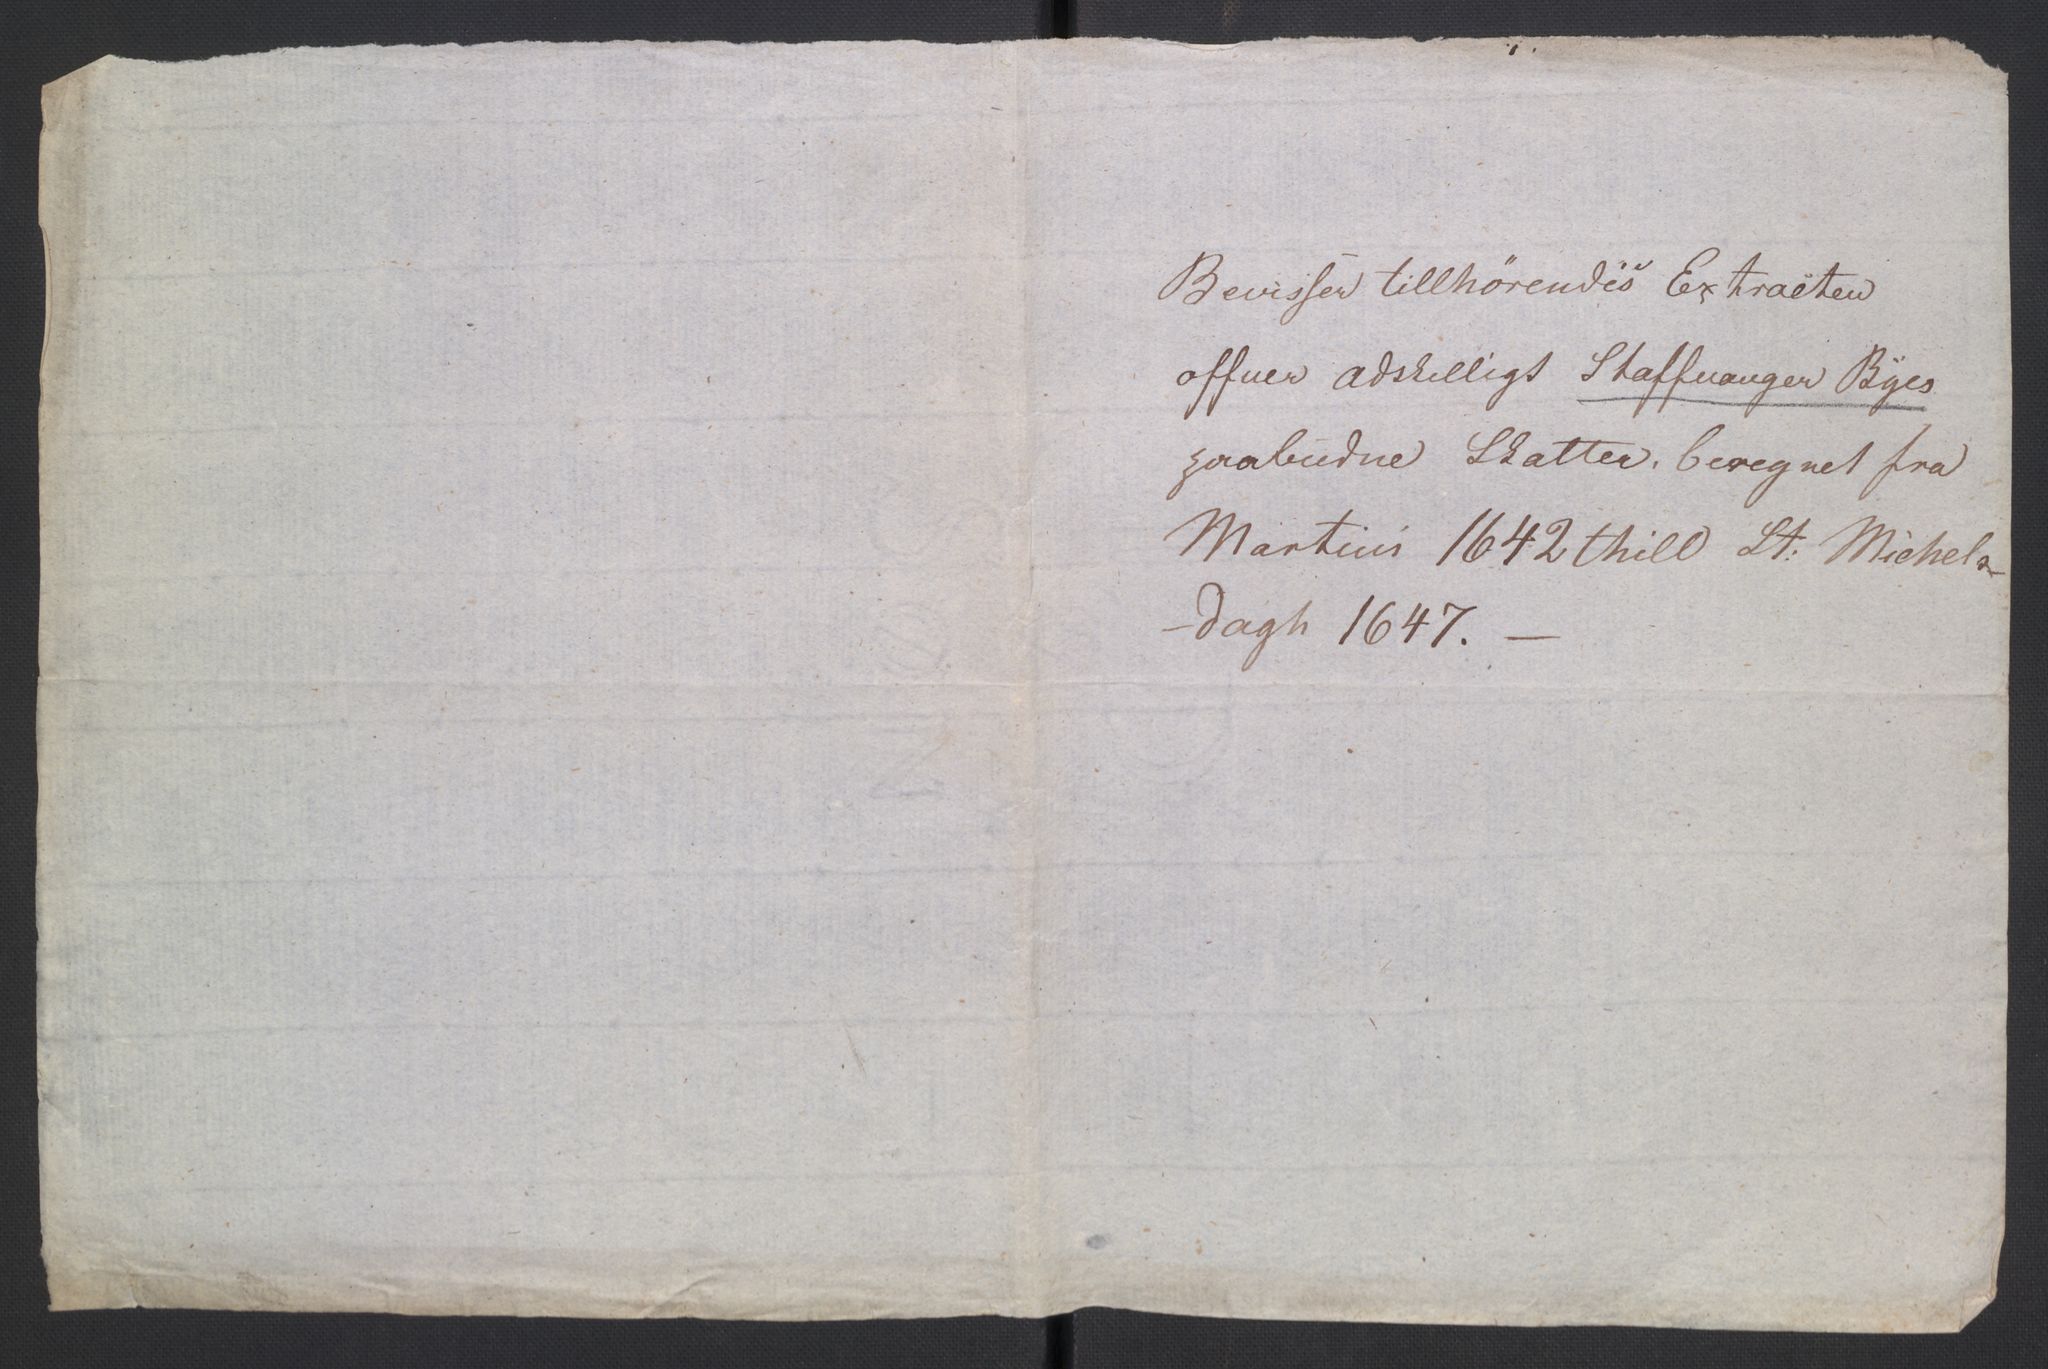 Bevisser tillhörendis Extracten
offuer adskelligt Staffuanger Byes
paabudne Skatter. beregnet fra
Martius 1642 thill St: Michels-
-dagh 1647. —